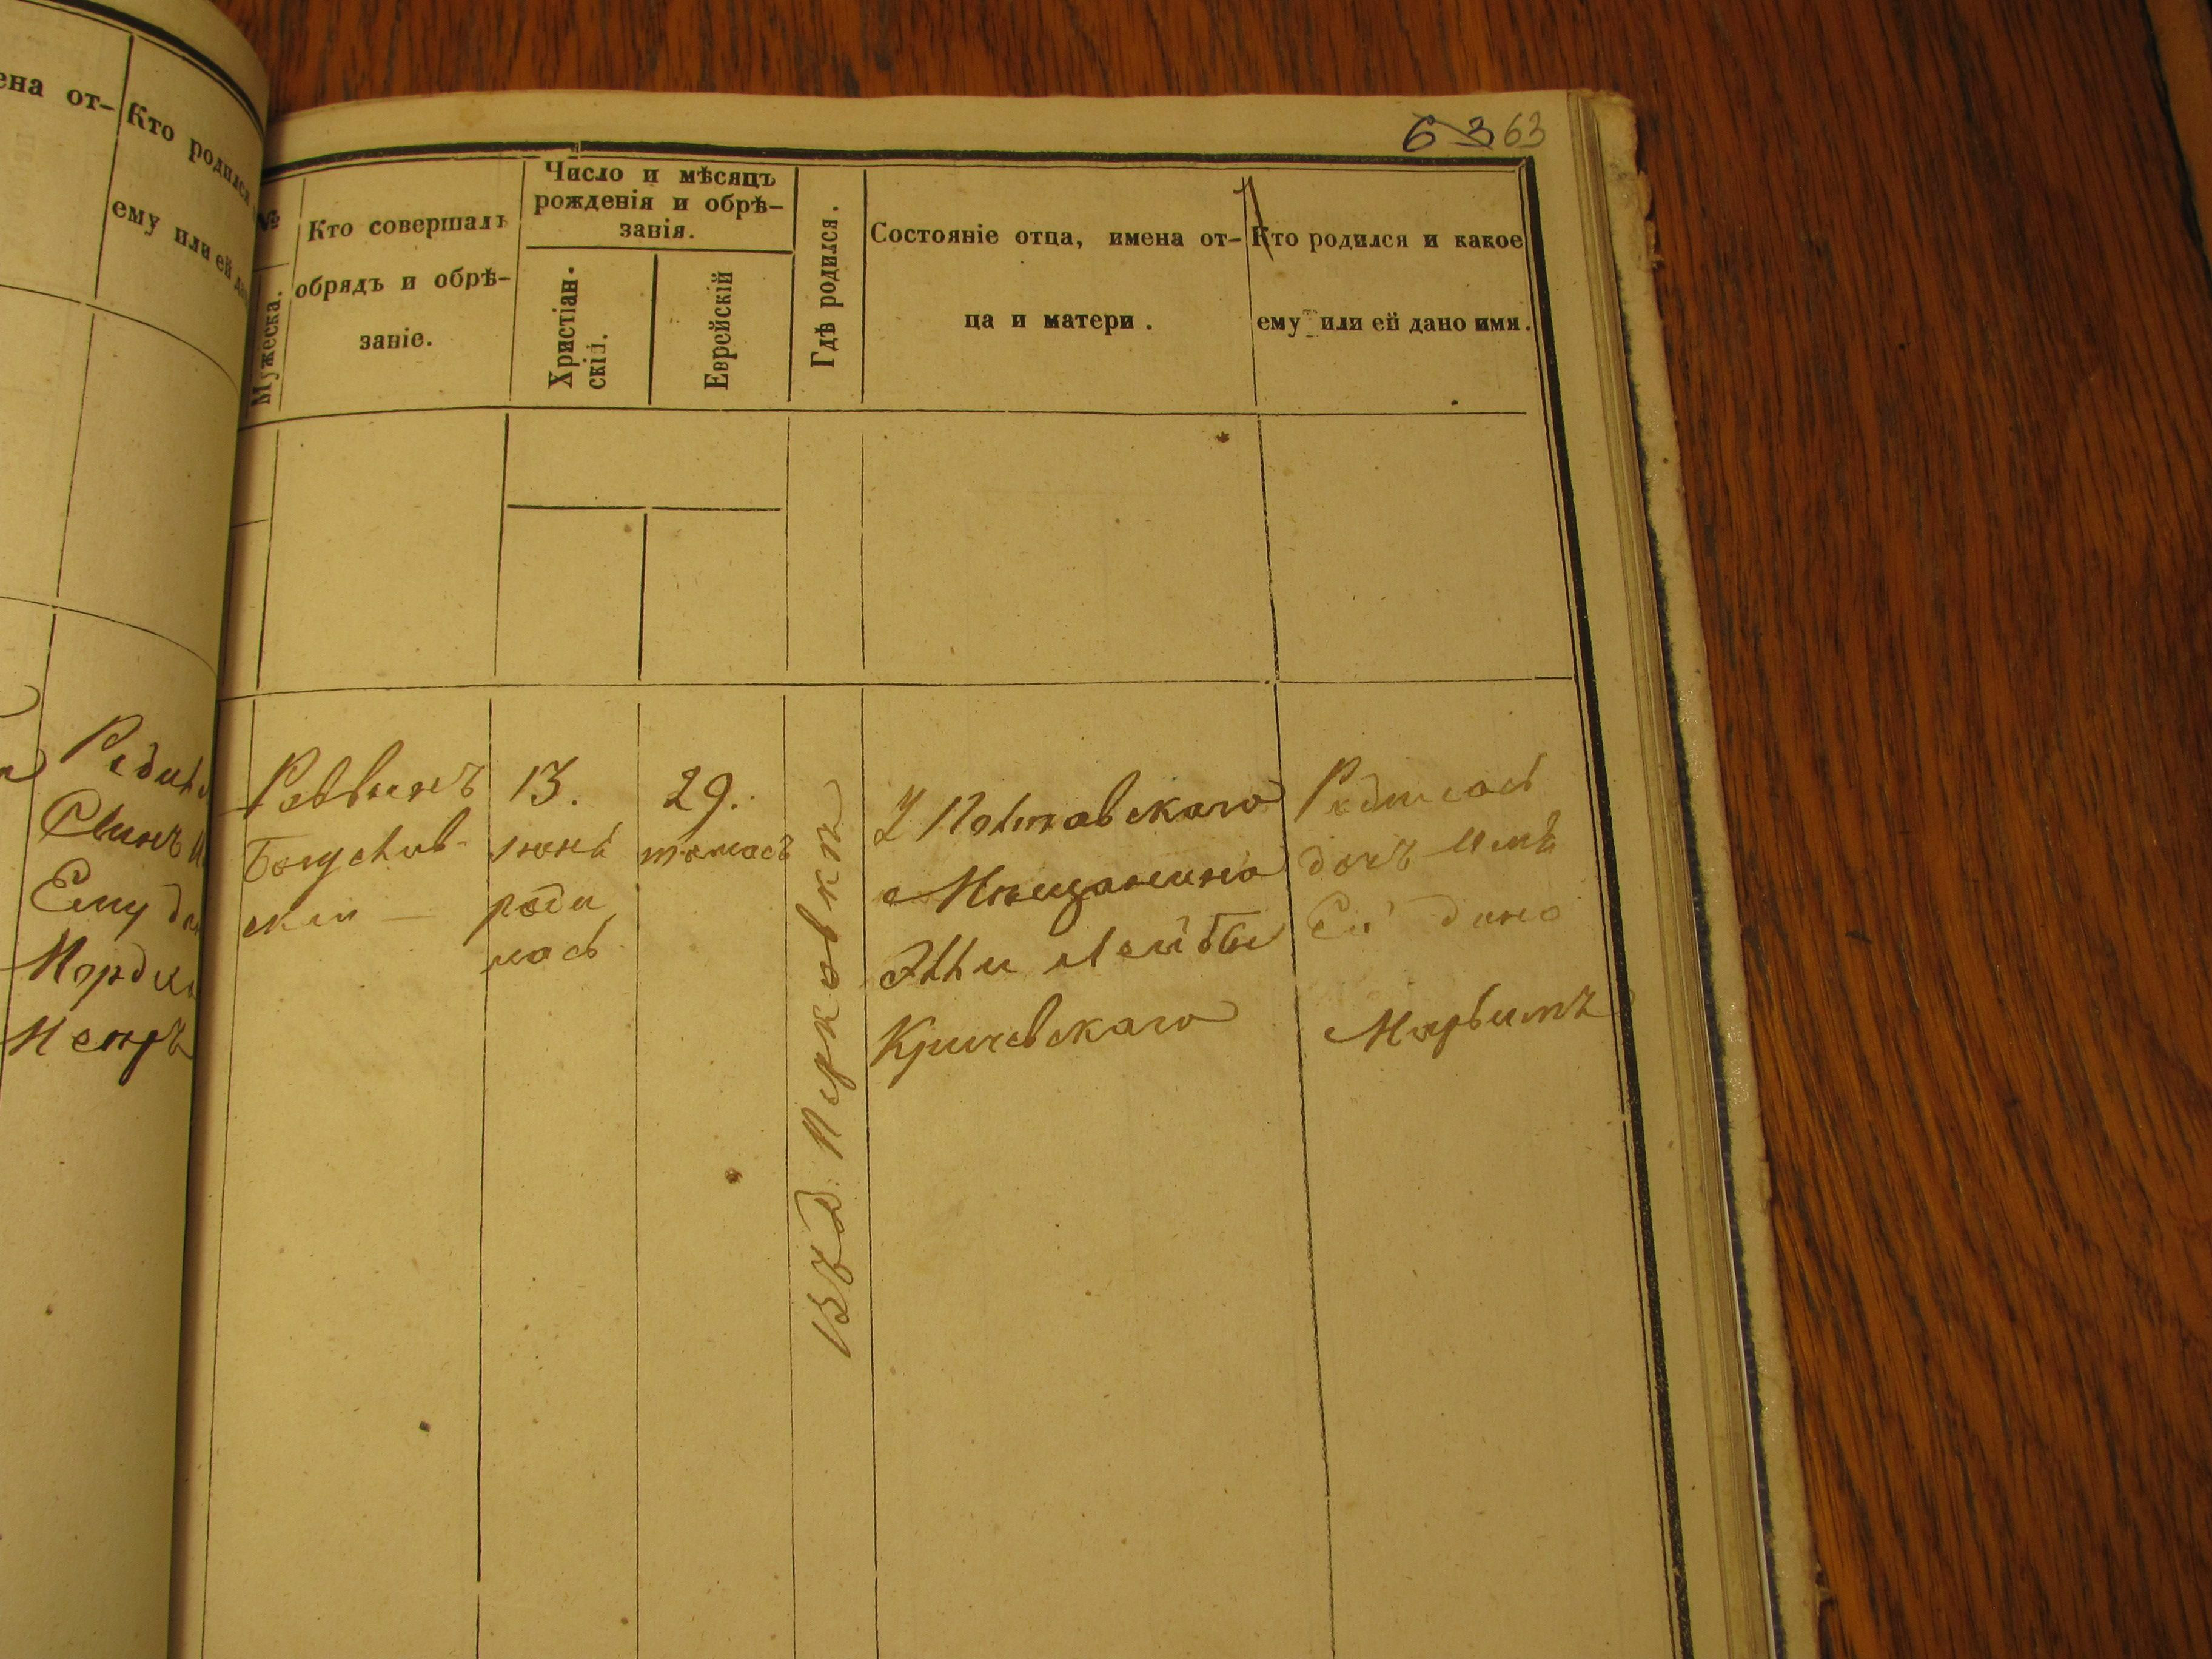 ена от-
Кто родился
ему или ей да
Родил
Сынъ И
Ему да
Мордк
6 3 63
№
Мужеска.
Кто совершалъ
обрядъ и обрѣ-
заніе.
Число и мѣсяцъ
рожденія и обрѣ-
занія.
Христіан-
скій.
Еврейскій
Гдѣ родился.
Состояніе отца, имена от-
ца и матери.
Кто родился и какое
ему или ей дано имя.
Раввинъ
Богуслав-
скій —
13.
іюнь
роди
лась
29.
тамасъ
Въ д. Пуковка
У Полтавскаго
Мѣщанина
Эли Лейбы
Кричевскаго
Родилась
дочъ Имѣ
Ей дано
Марьимъ